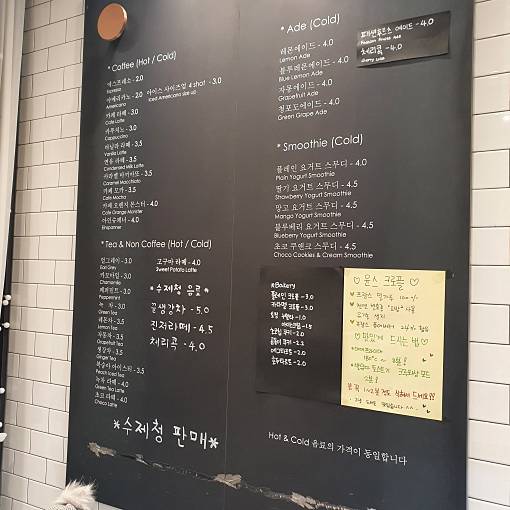 * Coffee (Hot / Cold)
에스프레소 - 2.0
Espresso
아메리카노 - 2.0 아이스 사이즈업 4 shot - 3.0
Americano Iced Americano size up
카페 라떼 - 3.0
Cafe Latte
카푸치노 - 3.0
Cappuccino
바닐라 라떼 - 3.5
Vanilla Latte
연유 라떼 - 3.5
Condensed Milk Latte
카라멜 마끼아또 - 3.5
Caramel Macchiato
카페 모카 - 3.5
Cafe Mocha
카페 오렌지 몬스터 - 4.0
Cafe Orange Monster
아인슈페너 - 4.0
Einspanner
* Tea & Non Coffee (Hot / Cold)
얼그레이 - 3.0
Earl Grey
캐모마일 - 3.0
Chamomile
페퍼민트 - 3.0
Peppermint
녹 차 - 3.0
Green Tea
레몬차 - 3.5
Lemon Tea
자몽차 - 3.5
Grapefruit Tea
생강차 - 3.5
Ginger Tea
복숭아 아이스티 - 3.5
Peach Iced Tea
녹차 라떼 - 4.0
Green Tea Latte
초코 라떼 - 4.0
Choco Latte
고구마 라떼 - 4.0
Sweet Potato Latte
* 수제청 음료 *
꿀생강차 - 5.0
진저라떼 - 4.5
체리콕 - 4.0
*수제청 판매*
* Ade (Cold)
레몬에이드 - 4.0
Lemon Ade
블루레몬에이드 - 4.0
Blue Lemon Ade
자몽에이드 - 4.0
Grapefruit Ade
청포도에이드 - 4.0
Green Grape Ade
패션후르츠 에이드 - 4.0
Passion Fruits Ade
체리콕 - 4.0
Cherry Coke
* Smoothie (Cold)
플레인 요거트 스무디 - 4.0
Plain Yogurt Smoothie
딸기 요거트 스무디 - 4.5
Strawberry Yogurt Smoothie
망고 요거트 스무디 - 4.5
Mango Yogurt Smoothie
블루베리 요거트 스무디 - 4.5
Blueberry Yogurt Smoothie
초코 쿠앤크 스무디 - 4.5
Choco Cookies & Cream Smoothie
*Bakery
플레인 크로플 - 3.0
카라멜 크로플 - 3.0
♡ 문스 크로플 ♡
♡맛있게 드시는 법♡
Hot & Cold 음료의 가격이 동일합니다